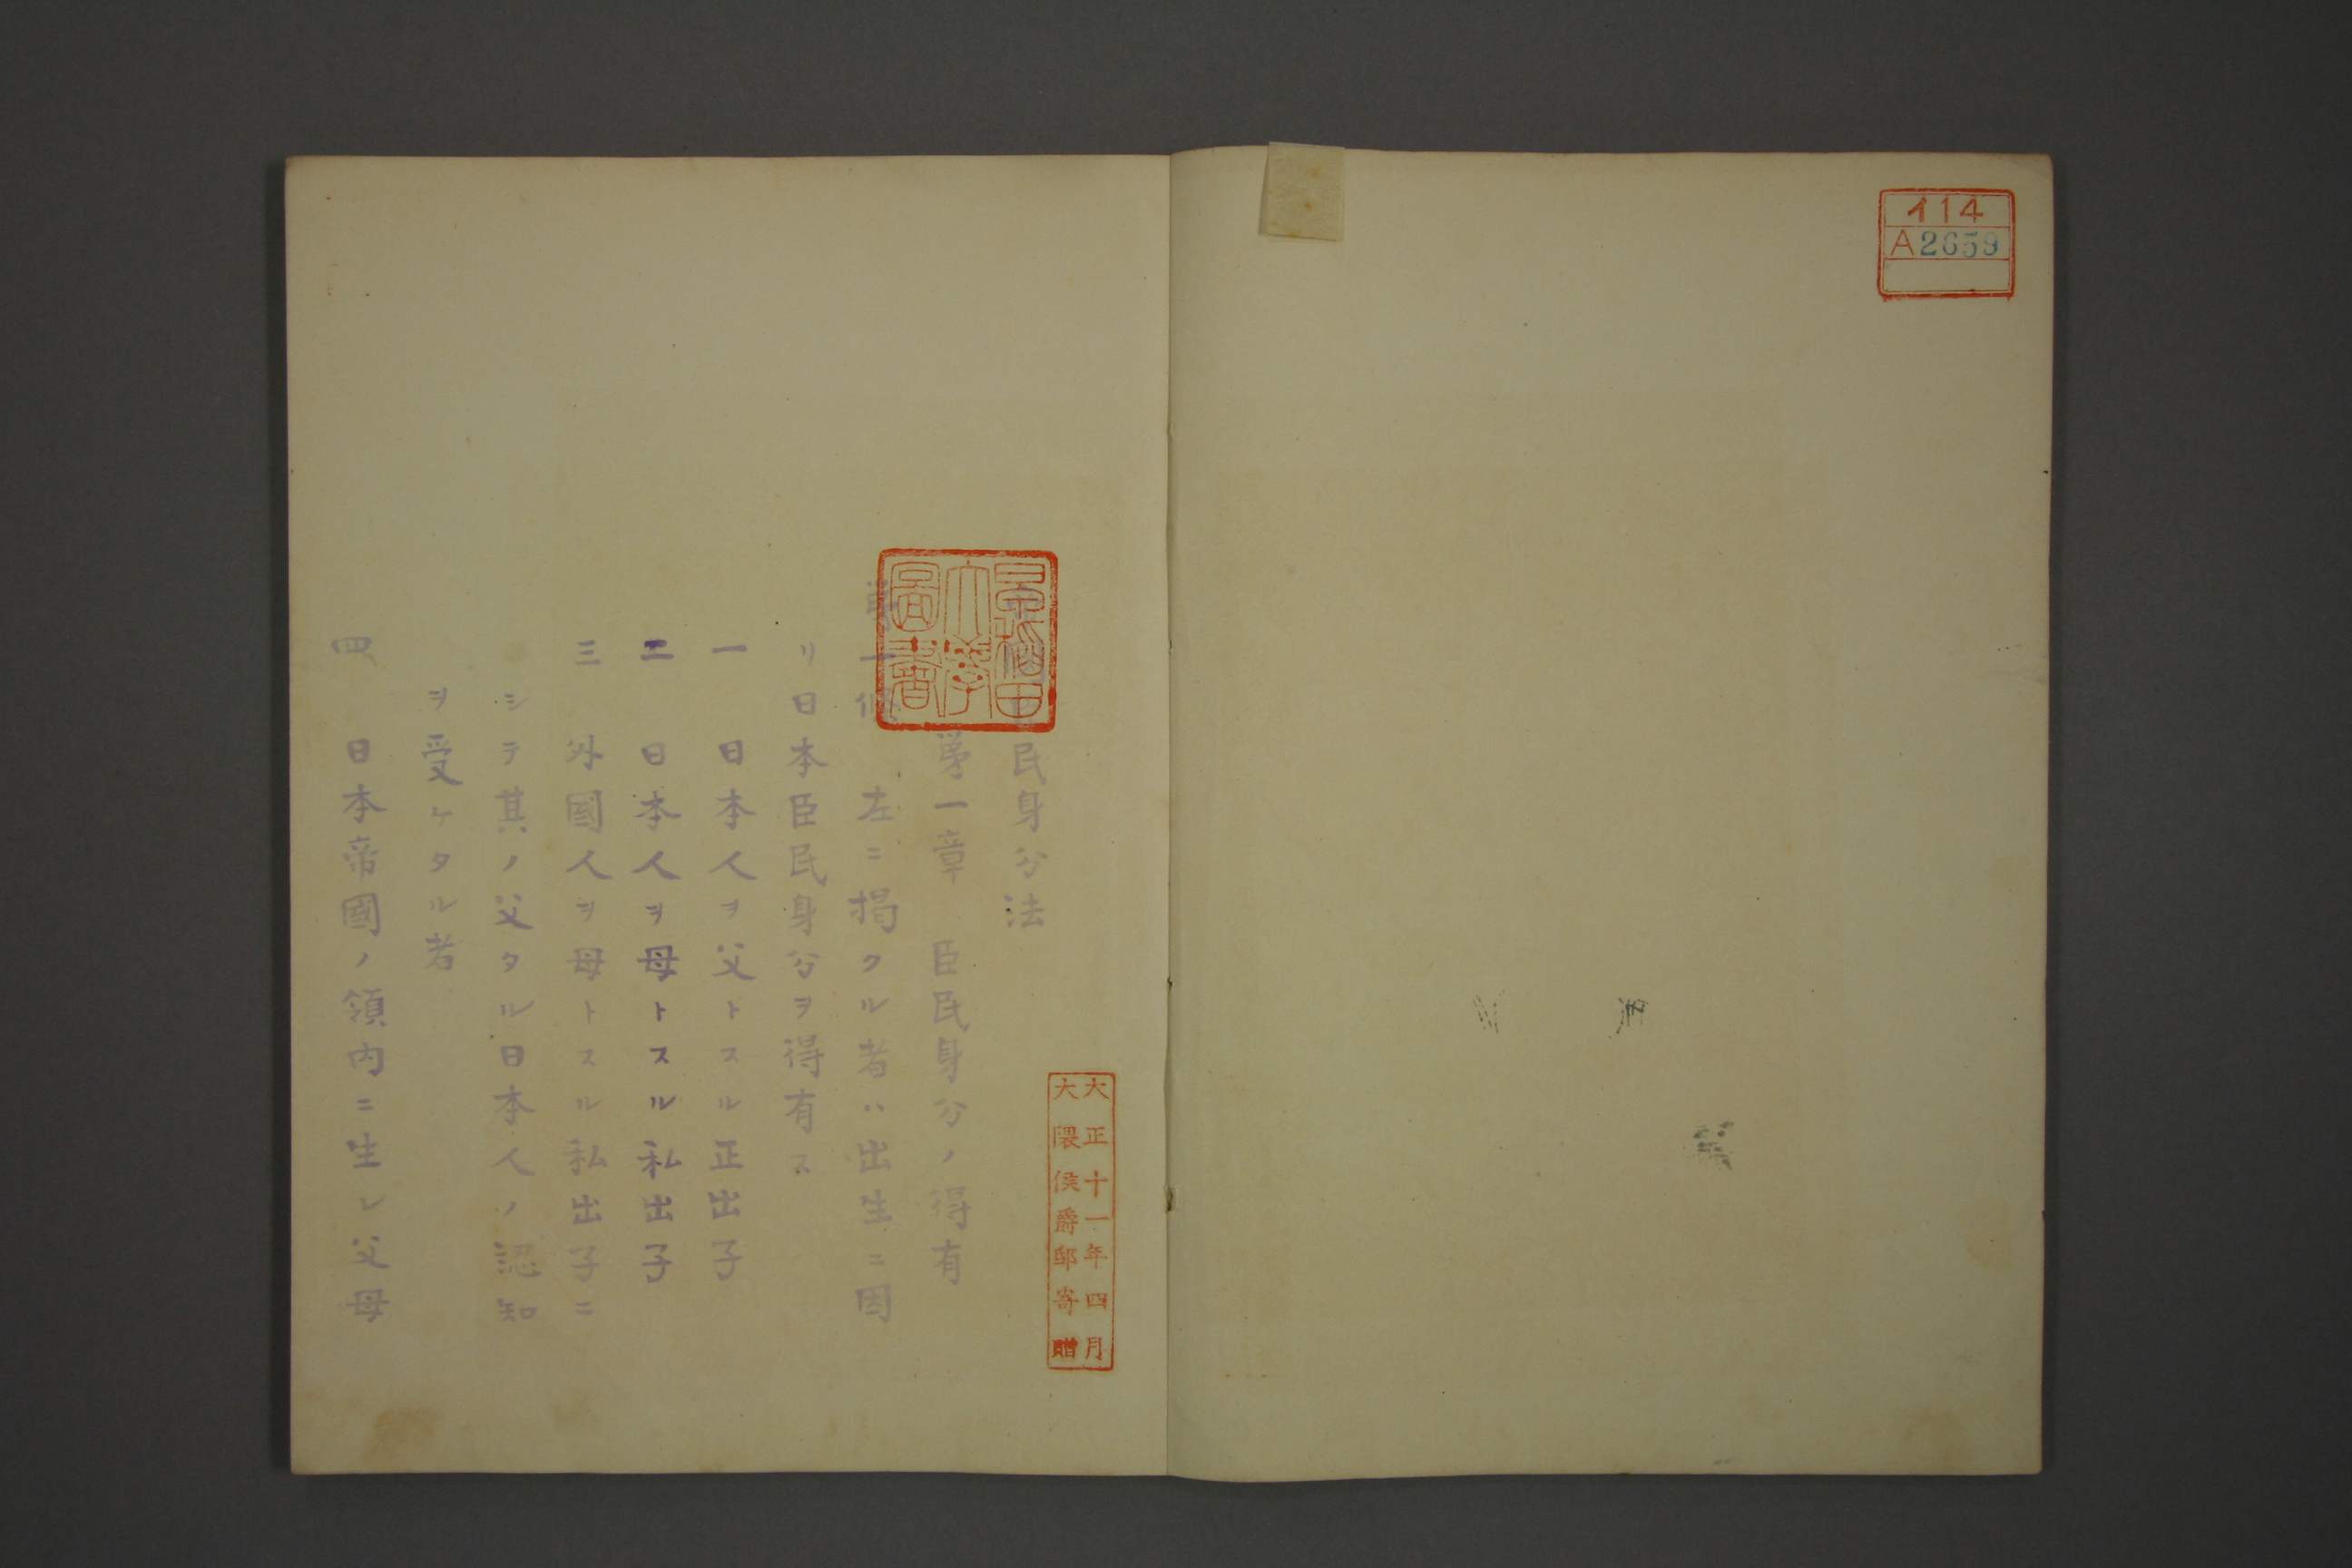 イ14
A2659
民身分法
第一章 臣民身分ノ得有
第一條 左ニ揭クル者ハ出生ニ因
リ日本臣民身分ヲ得有ス
一 日本人ヲ父トスル正出子
二 日本人ヲ母トスル私出子
三 外國人ヲ母トスル私出子ニ
シテ其ノ父タル日本人ノ認知
ヲ受ケタル者
四 日本帝國ノ領内ニ生レ父母
早稲田
大學
圖書
大正十一年四月
大隈侯爵邸寄贈